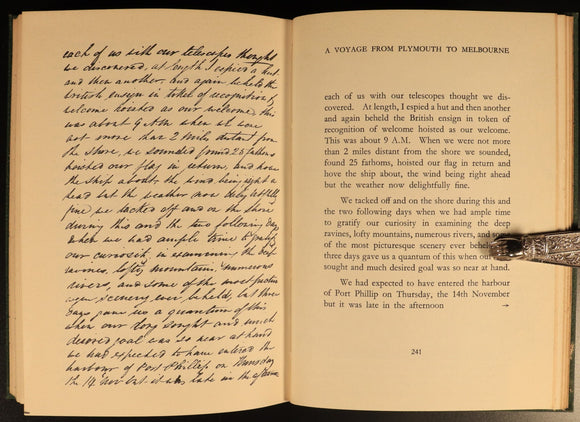 each of us with our telescopes thought
we discovered. at length I espied a hut
and then another, and again beheld the
British ensign in token of recognition of
welcome hoisted as our welcome, this
was about 9 A.M. when we were
not more than 2 Miles distant from
the shore, we sounded found 25 fathoms
hoisted our flag in return and hove
the ship about the wind being right a
head but the weather now
fine we tacked off and on the shore
during this and the two following days
when we had ample time to gratify
our curiosity in examining the deep
ravines, lofty mountains numerous
rivers, and some of the most
scenery ever beheld, but three
days gave us a quantum of this
when our long sought and much
desired goal was so near at hand
we had expected to have entered the
harbour of Port Phillip on Thursday
the 14 Nov but it was late in the afternoon
A VOYAGE FROM PLYMOUTH TO MELBOURNE
each of us with our telescopes thought we dis-
covered. At length, I espied a hut and then another
and again beheld the British ensign in token of
recognition of welcome hoisted as our welcome.
This was about 9 A.M. When we were not more
than 2 miles distant from the shore we sounded,
found 25 fathoms, hoisted our flag in return and
hove the ship about, the wind being right ahead
but the weather now delightfully fine.
We tacked off and on the shore during this and
the two following days when we had ample time
to gratify our curiosity in examining the deep
ravines, lofty mountains, numerous rivers, and some
of the most picturesque scenery ever
three days gave us a quantum of this when our
sought and much desired goal was so near at hand.
We had expected to have entered the harbour
of Port Phillip on Thursday, the 14th November
but it was late in the afternoon →
241